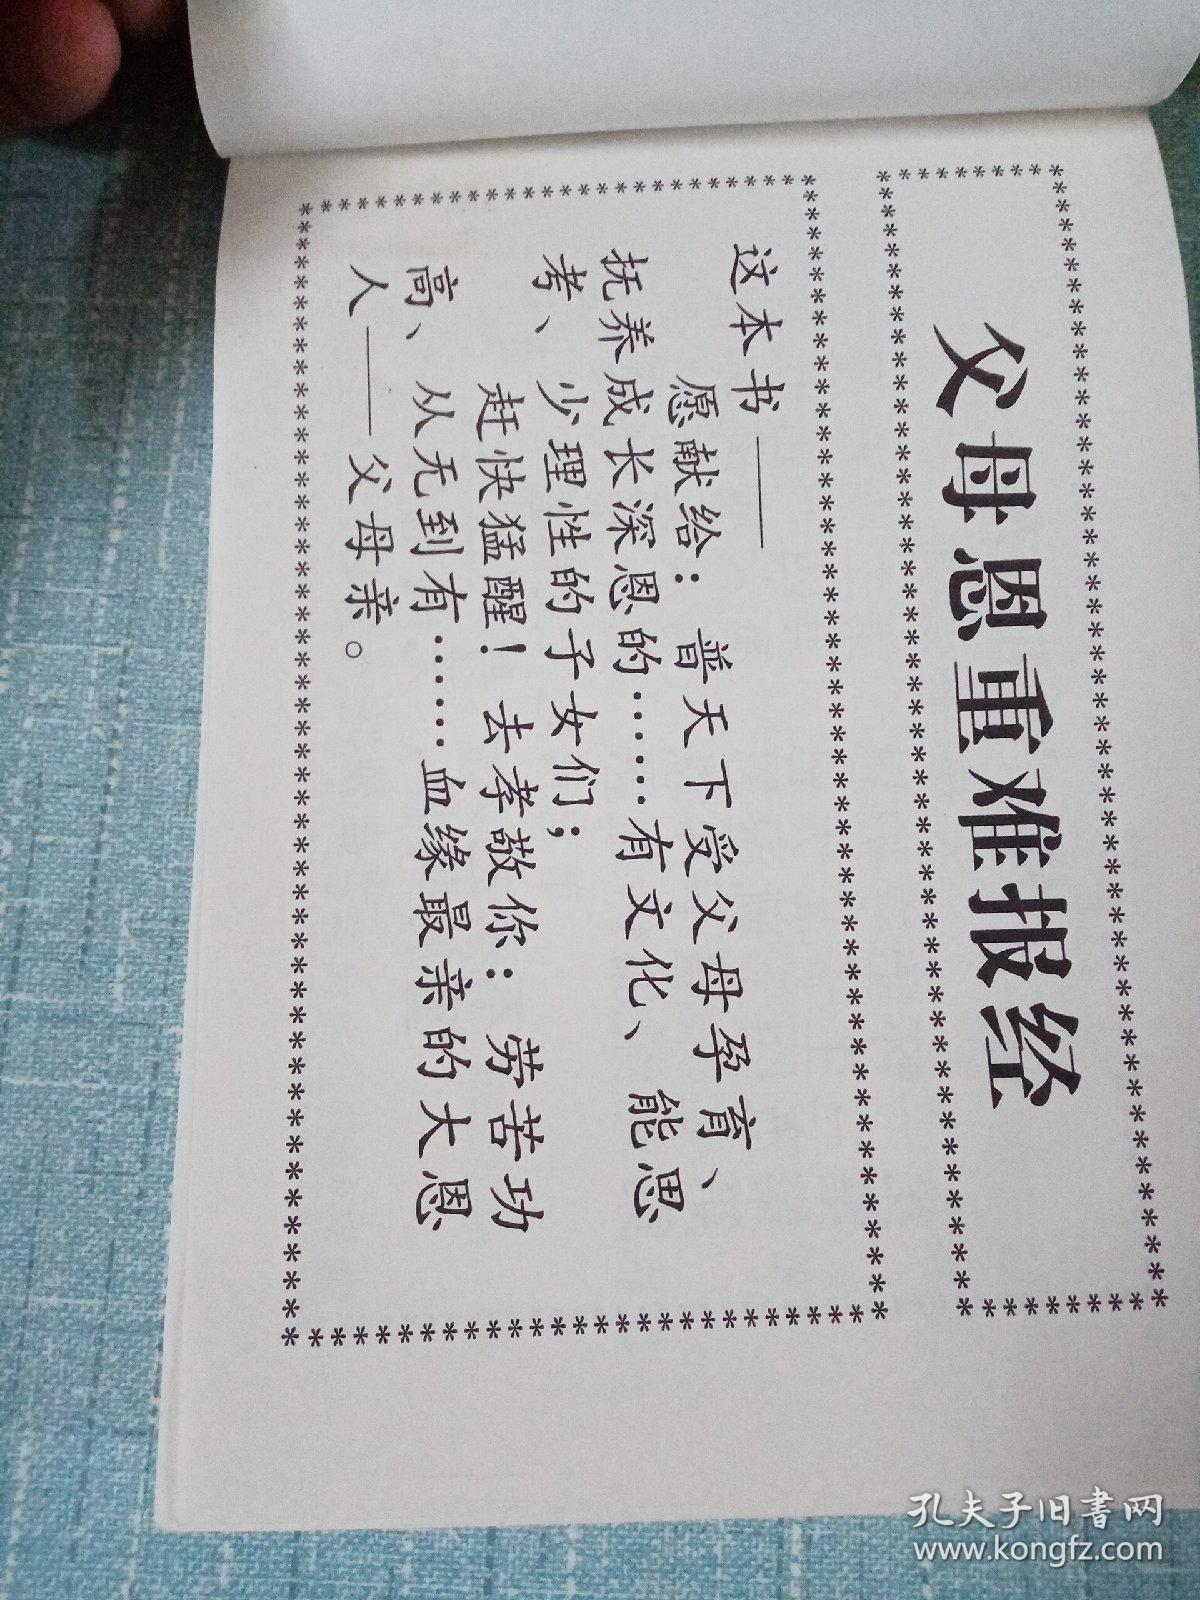 父母恩重难报经
这本书——
愿献给：普天下受父母孕育、
抚养成长深恩的……有文化、能思
考、少理性的子女们；
赶快猛醒！去孝敬你：劳苦功
高、从无到有……血缘最亲的大恩
人——父母亲。
孔夫子旧书网
www.kongfz.com